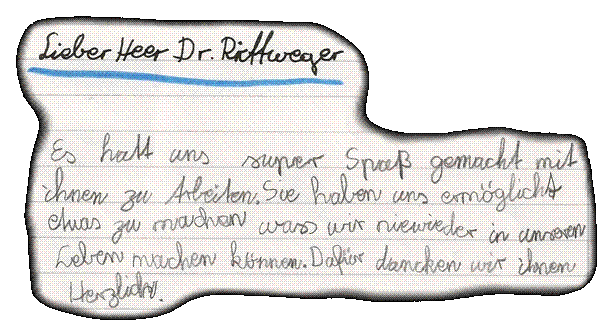 Lieber Heer Dr. Rittweger
Es hatt uns super Spaß gemacht mit
ihnen zu Arbeiten. Sie haben uns ermöglicht
etwas zu machen wass wir niewieder in unseren
Leben machen können. Dafür dancken wir ihnen
Herzlich.